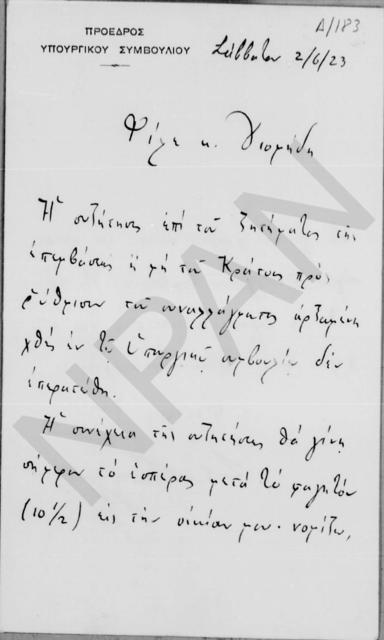 Α/183
ΠΡΟΕΔΡΟΣ
ΥΠΟΥΡΓΙΚΟΥ ΣΥΜΒΟΥΛΙΟΥ
Σάββατον 2/6/23
Φίλε κ. Διομήδη
Ἡ συζήτησις ἐπὶ τοῦ ζητήματος τῆς
ἐπεμβάσεως ἢ μὴ τοῦ Κράτους πρὸς
ῥύθμισιν τοῦ συναλλάγματος ἀρξαμένη
χθὲς ἐν τῷ Ὑπουργικῷ συμβουλίῳ δὲν
ἐπερατώθη.
Ἡ συνέχεια τῆς συζητήσεως θὰ γίνῃ
σήμερον τὸ ἑσπέρας μετὰ τὸ φαγητόν
(10 1/2) εἰς τὴν οἰκίαν μου. νομίζω,
NPAN